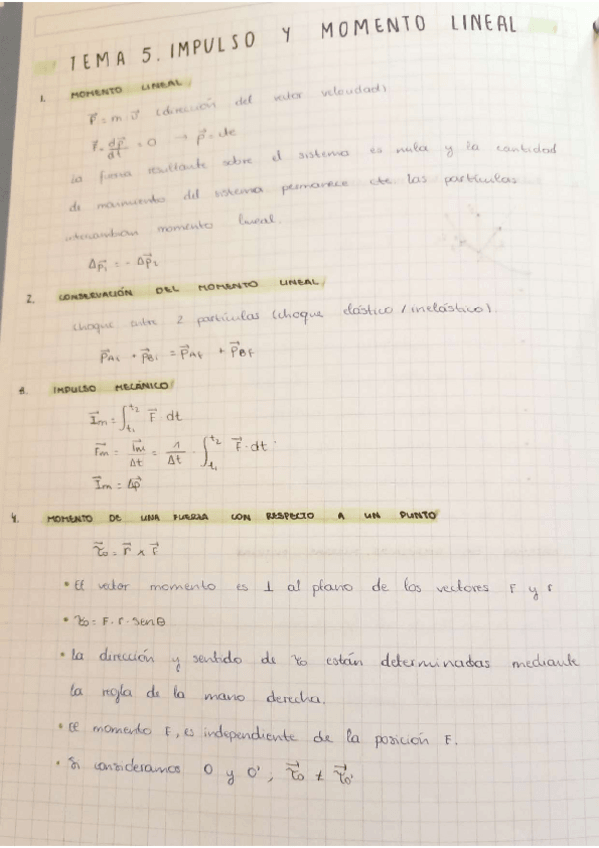 TEMA 5. IMPULSO Y MOMENTO LINEAL
1. MOMENTO LINEAL
P⃗ = m · v⃗ (dirección del vector velocidad)
F = dp⃗/dt = 0 → p⃗ = cte
la fuerza resultante sobre el sistema es nula y la cantidad
de movimiento del sistema permanece cte. las partículas
intercambian momento lineal.
Δp⃗₁ = - Δp⃗₂
2. CONSERVACIÓN DEL MOMENTO LINEAL
choque entre 2 partículas (choque elástico / inelástico).
p⃗Ai + p⃗Bi = p⃗Af + p⃗Bf
IMPULSO MECÁNICO
I⃗m = ∫t₁^t₂ F⃗ dt
F⃗m = I⃗m/Δt = 1/Δt · ∫t₁^t₂ F⃗ · dt
I⃗m = Δp⃗
4. MOMENTO DE UNA FUERZA CON RESPECTO A UN PUNTO
τ⃗o = r⃗ ∧ F⃗
• El vector momento es ⊥ al plano de los vectores F y r
• τo = F · r · senθ
• la dirección y sentido de τo están determinadas mediante
la regla de la mano derecha.
• El momento F, es independiente de la posición F.
• Si consideramos O y O', τ⃗o ≠ τ⃗o'